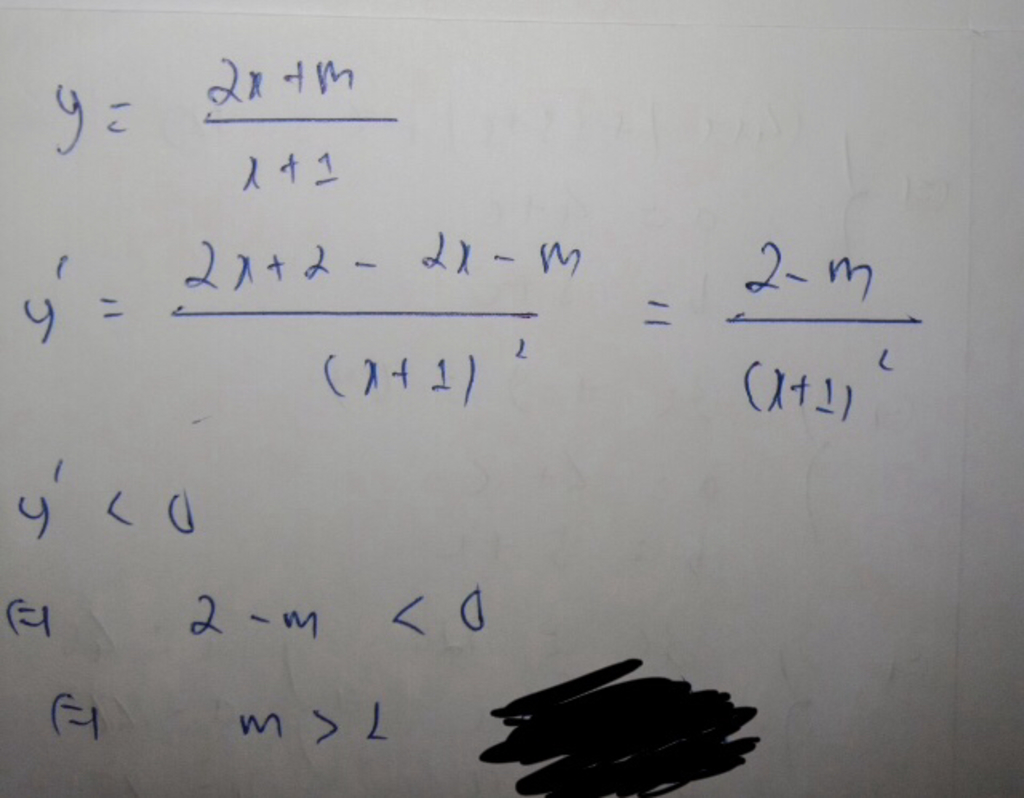 y = \frac{2x+m}{x+1}
y' = \frac{2x+2-2x-m}{(x+1)^2} = \frac{2-m}{(x+1)^2}
y' < 0
⇔ 2-m < 0
⇔ m > 2